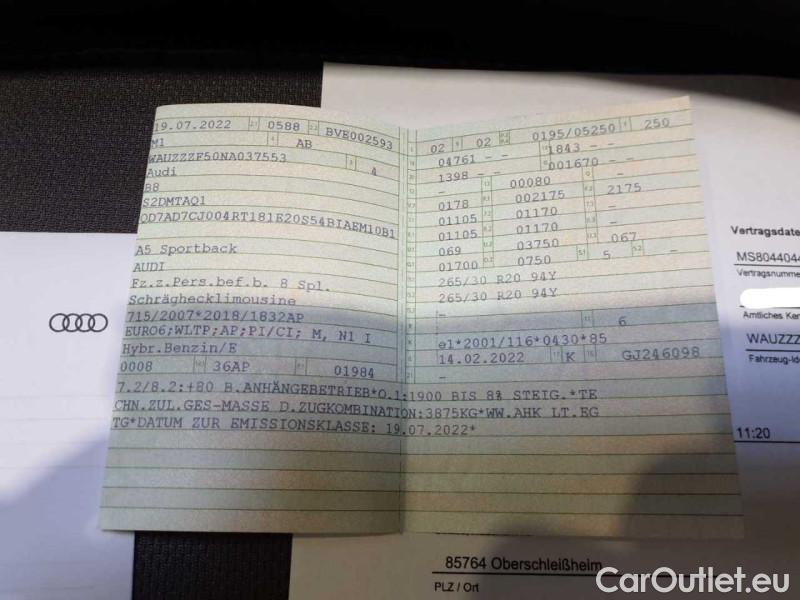 19.07.2022 2.1 0588 2.2 BVE002593
M1 4 AB
WAUZZZF50NA037553 3 4
Audi
B8
S2DMTAQ1
QD7AD7CJ004RT181E20S54BIAEM10B1
A5 Sportback
AUDI
Fz.z.Pers.bef.b. 8 Spl.
Schräghecklimousine
715/2007*2018/1832AP
EURO6;WLTP;AP;PI/CI; M, N1 I
Hybr.Benzin/E
0008 36AP 01984
02 02 0195/05250 250
04761 - - 1843 - -
1398 - - 001670 - -
00080
0178 002175 2175
01105 01170 -
01105 01170 -
069 03750 067
01700 0750 5 -
265/30 R20 94Y
265/30 R20 94Y
-
- 6
e1*2001/116*0430*85
14.02.2022 K GJ246098
-
7.2/8.2:+80 B.ANHÄNGEBETRIEB*O.1:1900 BIS 8% STEIG.*TE
CHN.ZUL.GES-MASSE D.ZUGKOMBINATION:3875KG*WW.AHK LT.EG
TG*DATUM ZUR EMISSIONSKLASSE: 19.07.2022*
Vertragsdate
MS8044044
Vertragsnumme
Amtliches Ken
WAUZZZ
Fahrzeug-Ide
11:20
85764 Oberschleißheim
PLZ / Ort
CarOutlet.eu